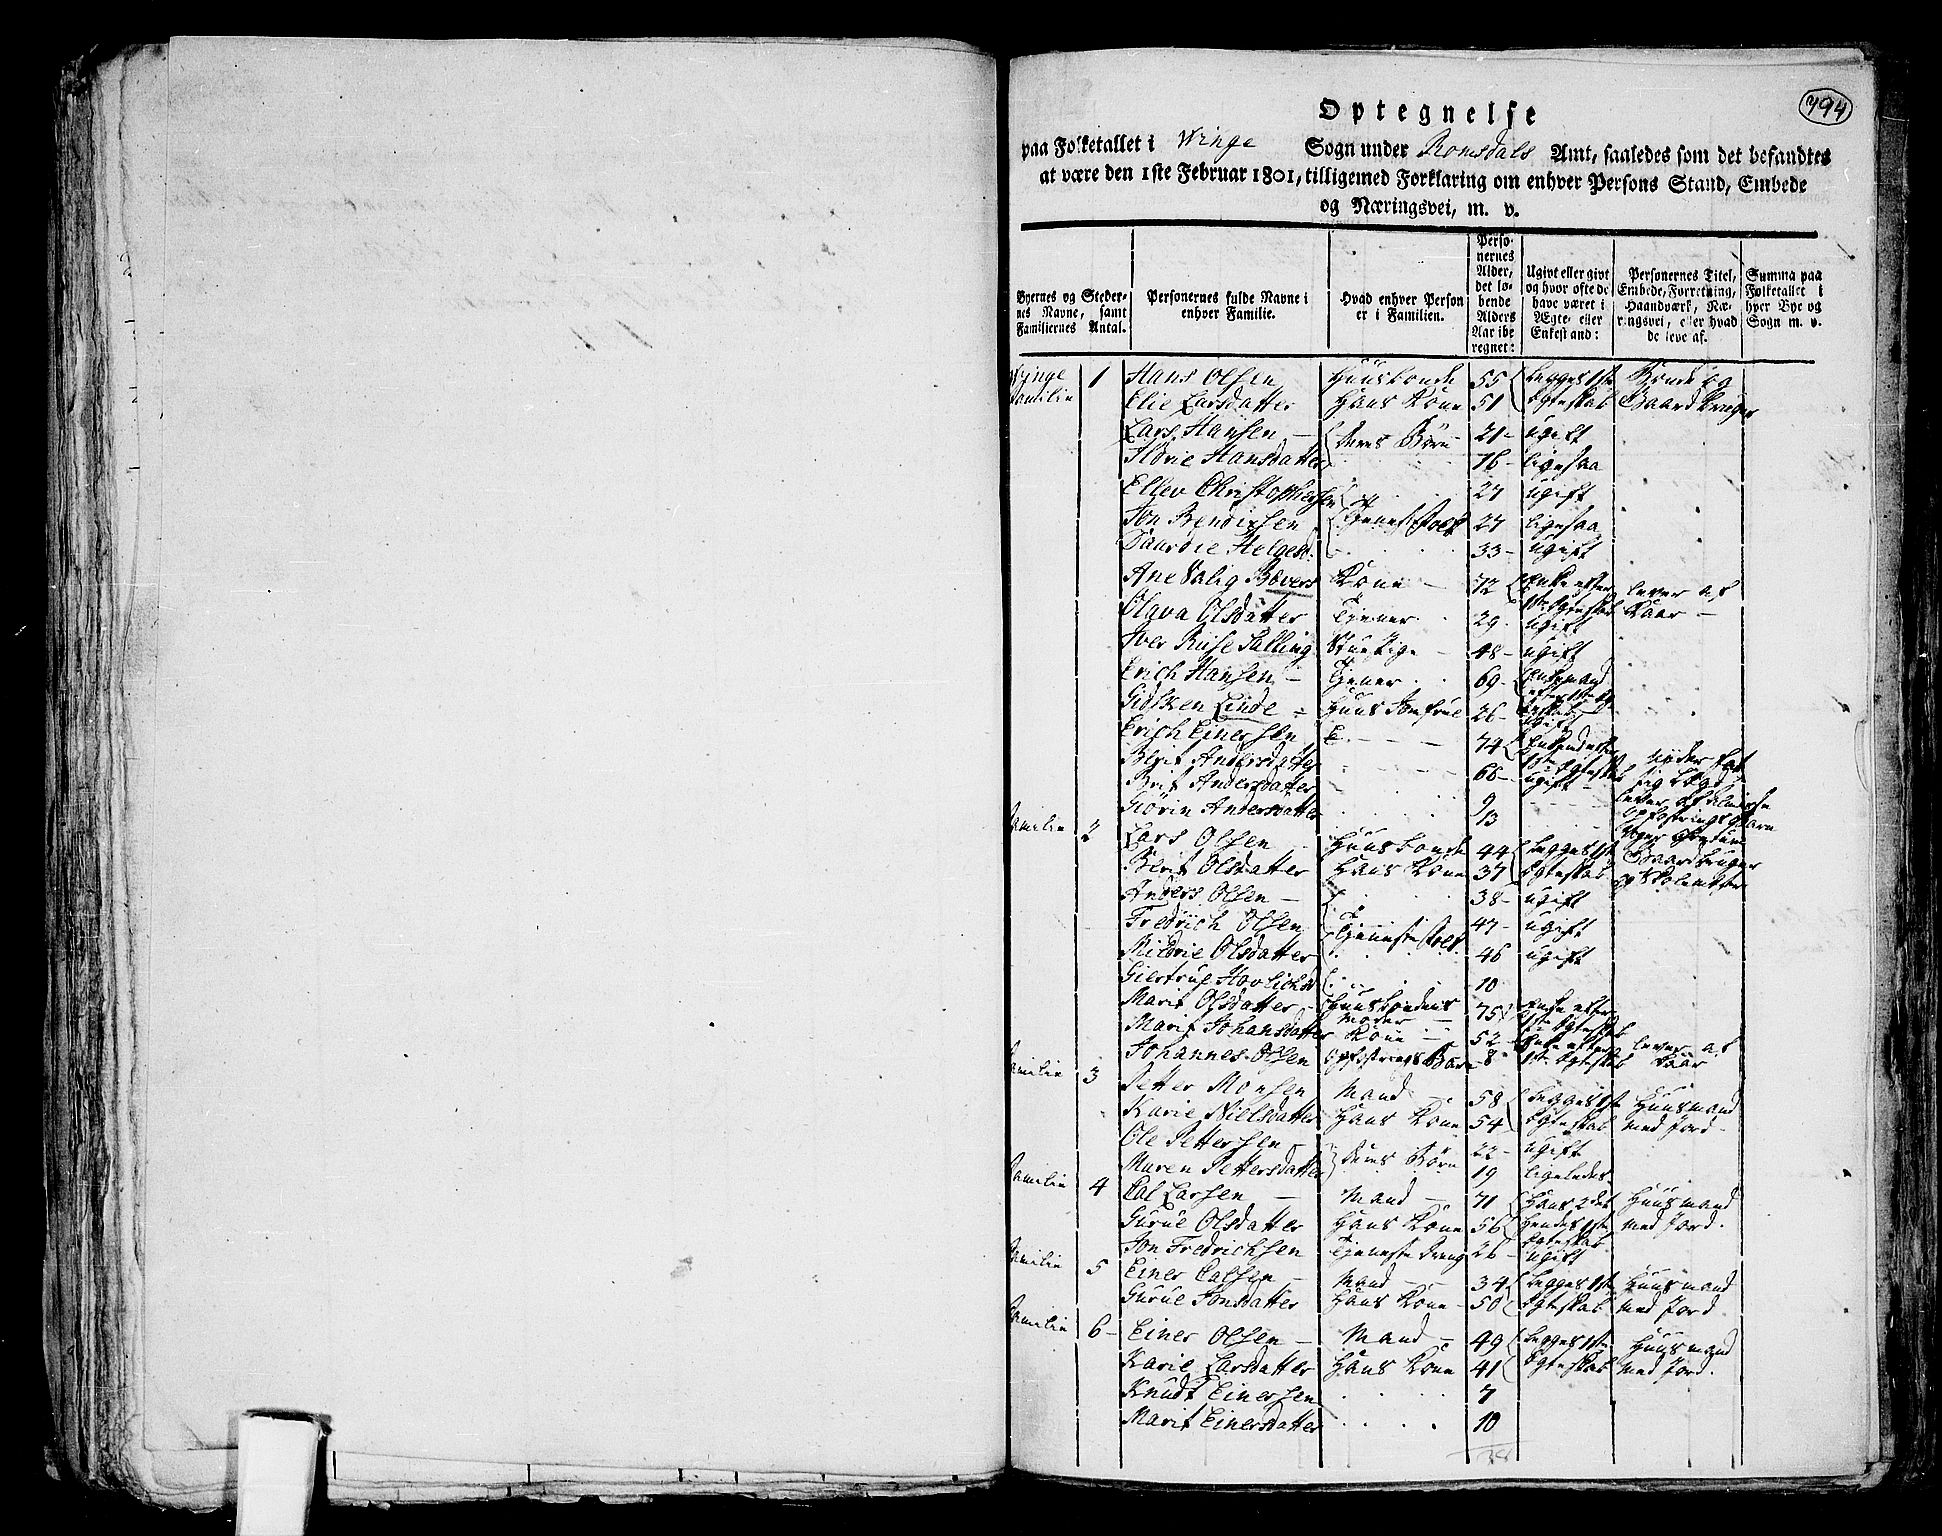 794
Optegnelse
paa Folketallet i Winge Sogn under Romsdals Amt, saaledes som det befandtes
at være den 1ste Februar 1801, tilligemed Forklaring om enhver Persons Stand, Embede
og Næringsvei, m. v.
Byernes og Stedernes Navne, samt Familiernes Antal.
Personernes fulde Navne i enhver Familie.
Hvad enhver Person er i Familien.
Personernes Alder, det løbende Alders Aar iberegnet:
Ugivt eller givt og hvor ofte de have været i Ægte- eller Enkestand:
Personernes Titel, Embede, Forretning, Haandværk, Næringsvei, eller hvad de leve af.
Summa paa Folketallet i hver Bye og Sogn m. v.
Winge 1 Hans Olsen Huusbonde 55 begge 1ste Bonde og
Familie Elie Larsdatter Hans Kone 51 Egteskab Gaardbruger
Lars Hansen — deres Børn 21 - ugift
Ildrie Hansdatter 16 - ligesaa
Ellev Christophersen 27 ugift
Jon Bendixsen Tjenestfolk 27 ligesaa
Haardie Helgesd. 33 - ugift
Ane Valig Bøvers Kone — 72 Enke efter lever af
Olava Olsdatter Tjener 29 1ste Egteskab Kaar —
ugift
Iver Riise Salling Stuepige — 48 - ugift
Erich Hansen — Tjener 69 - Enkemand
efter 1ste
Gidsken Linde Huus Jomfrue 26 - Egteskab
ugift
Erich Einersen 74
Berit Andersdatter 66 - 1ste Egteskab
Brit Andersdatter 9 ugift
Giørin Andersdatter 13
Familie 2 Lars Olsen Huusbonde 44 begge 1ste
Berit Olsdatter Hans Kone 37 Egteskab Gaardbruger
Anders Olsen — 38 - ugift
Fredrich Olsen Tjenestefolk 47 - ugift
Mildrie Olsdatter 46 ugift
Giertrue 10
Marit Olsdatter - Huusbondens 75 Enke efter
Moder — 1ste Egteskab
Marit Johansdatter Kone 52 - Enke efter lever af
Johannes Olsen Opfostrings Barn 8 1ste Egteskab Kaar
Familie 3 Petter Monsen Mand 58 begge 1ste Huusmand
Karie Nielsdatter Hans Kone 54 Egteskab med Jord -
Ole Pettersen — deres Børn 22 - ugift
Maren Pettersdatter 19 ligeledes
Familie 4 Pal Larsen — Mand — 71 Hans 2det Huusmand
Gurue Olsdatter Hans Kone 56 Hendes 1ste med Jord.
Egteskab
Jon Fredrichsen Tjeneste Dreng 26 - ugift
Familie 5 Einer Palsen — Mand 34 begge 1ste Huusmand
Gurue Jonsdatter Hans Kone - 50 Egteskab med Jord
Familie 6 - Einer Olsen — Mand — 49 begge 1ste Huusmand
Karie Larsdatter Hans Kone 41 Egteskab med Jord.
Knudt Einersen 7
Marit Einersdatter 10
38